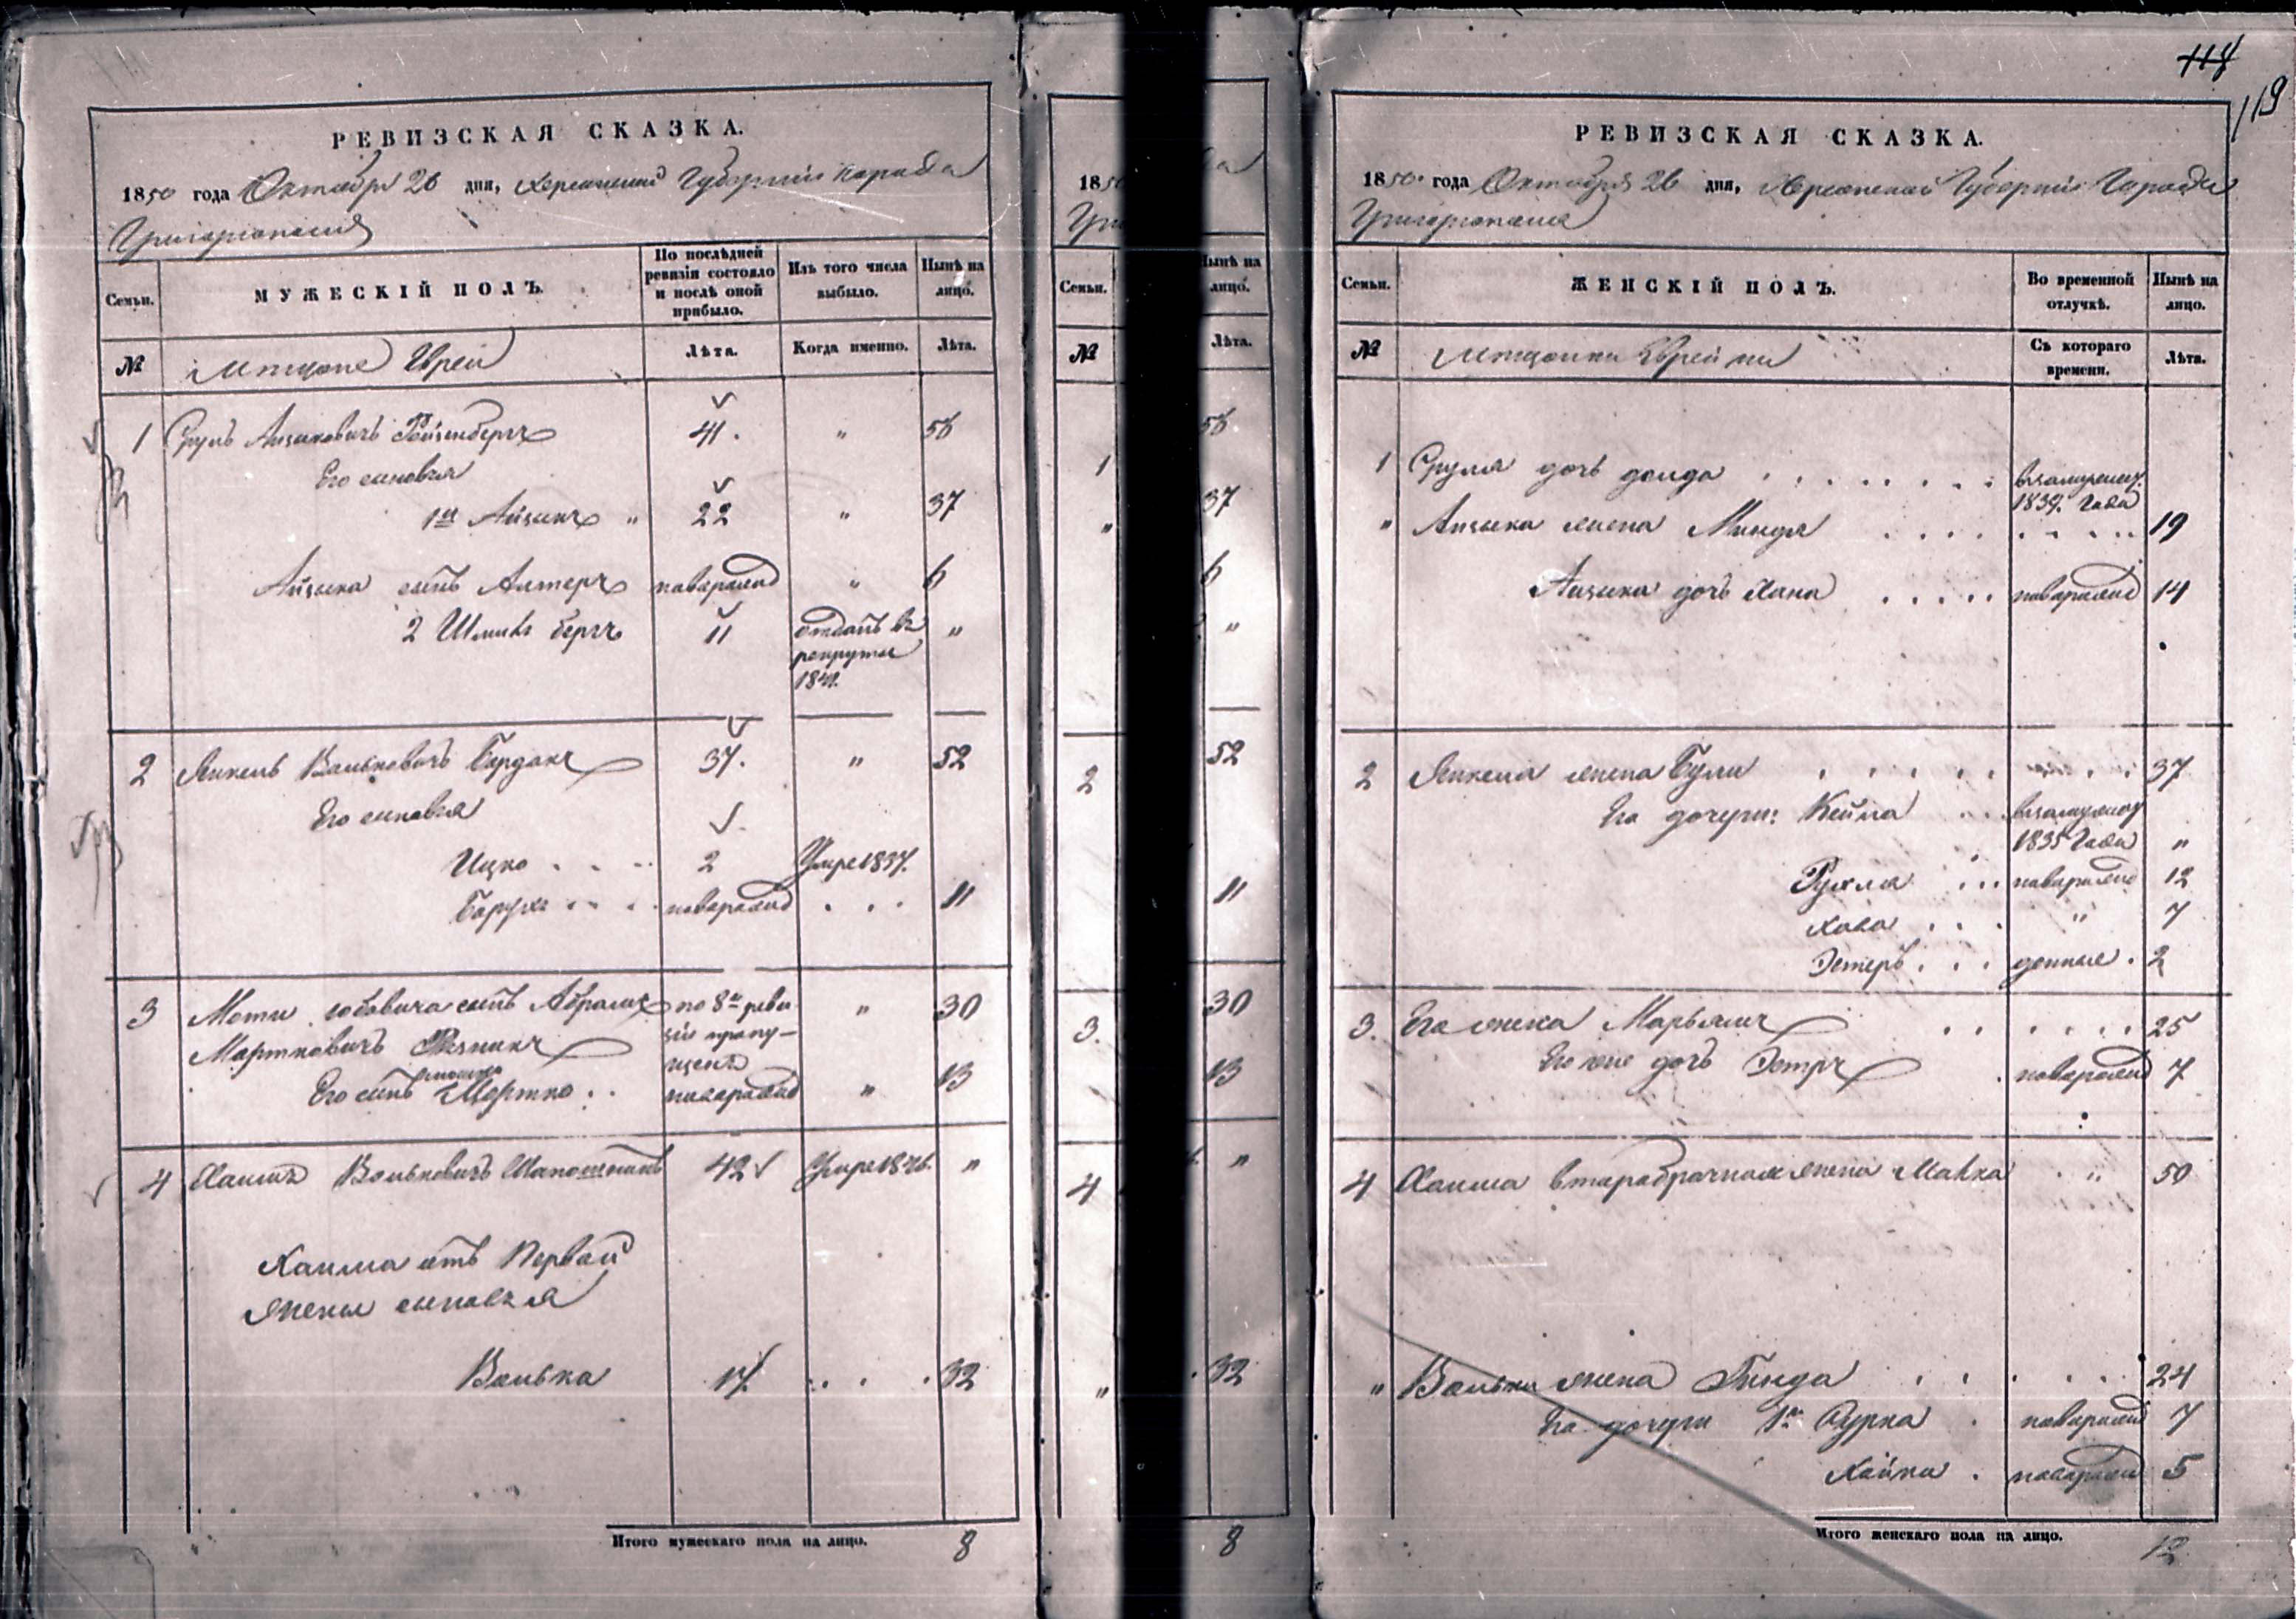 РЕВИЗСКАЯ СКАЗКА.
1850 года Октября 26 дня, Херсонской Губернии города
Григориополя
Семьи.
МУЖЕСКІЙ ПОЛЪ.
По послѣдней ревизіи состояло и послѣ оной прибыло.
Изъ того числа выбыло.
Нынѣ на лицо.
№
Мещане Евреи
Лѣта.
Когда именно.
Лѣта.
1 Сруль Айзиковичъ 41. " 56
Его сыновья
1й Айзикъ " 22 " 37
Айзика сынъ Алтеръ новорожд " 6
2 Шмиль беръ 11 отданъ въ рекруты "
2 Янкель Вольковичъ Бордакъ 37. " 52
Его сыновья
Ицко 2 Умре 1837.
Борухъ новорожд 11
3 Мотя сынъ Абрамъ по 8й реви " 30
Мортковичъ Резникъ зіи пропу-
щенъ
Его сынъ Мортко новорожд " 13
4 Хаимъ Вольковичъ 42 Умре 1846. "
Хаима отъ Первой
жены сыновья
Волька 17 32
Итого мужескаго пола на лицо. 8
185
Гри
Семьи.
№
1
"
2
3.
4
"
Нынѣ на лицо.
Лѣта.
56
37
6
"
52
11
30
13
"
32
8
118
119
РЕВИЗСКАЯ СКАЗКА.
1850 года Октября 26 дня, Херсонской Губернии Города
Григориополя
Семьи.
ЖЕНСКІЙ ПОЛЪ.
Во временной отлучкѣ.
Нынѣ на лицо.
№
Мещанки Еврейки
Съ котораго времени.
Лѣта.
1 Сруля дочь взамужеству
1839. Года
" Айзика жена Миндя 19
Айзика дочь Хана новорожд 14
2 Янкеля жена Буля 37
Его дочери: Кейла взамужеству
1835 Года "
Рухля новорожд 12
Хава " 7
Эстеръ 2
3. Его жена Марьямъ 25
Его же дочь Эстръ новорожд 7
4 Хаима второбрачная жена Малка " 50
" Вольки жена Гинда 24
Его дочери 1я Сурка новорожд 7
Хайка новорожд 5
Итого женскаго пола на лицо. 12